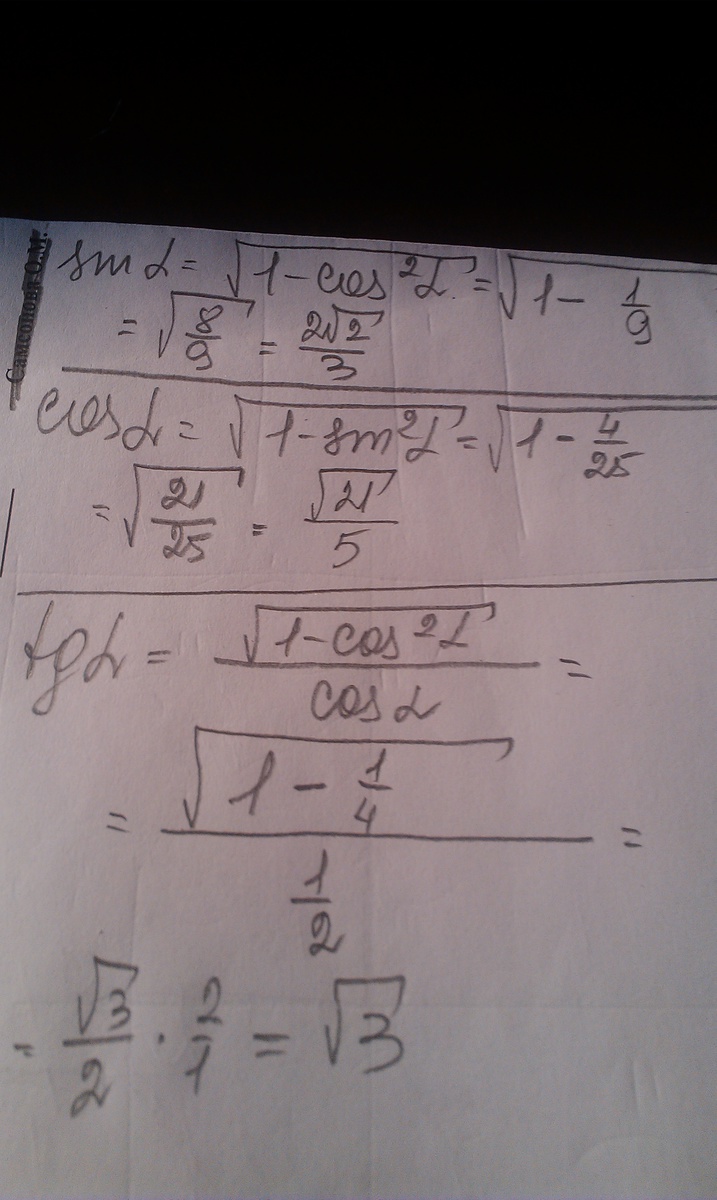 Самсонова О.М.
sin α = √(1-cos²α) = √(1 - 1/9)
= √(8/9) = 2√2/3
cos α = √(1-sin²α) = √(1 - 4/25)
= √(21/25) = √21/5
tg α = √(1-cos²α)/cos α =
= √(1 - 1/4)/(1/2) =
= √3/2 · 2/1 = √3